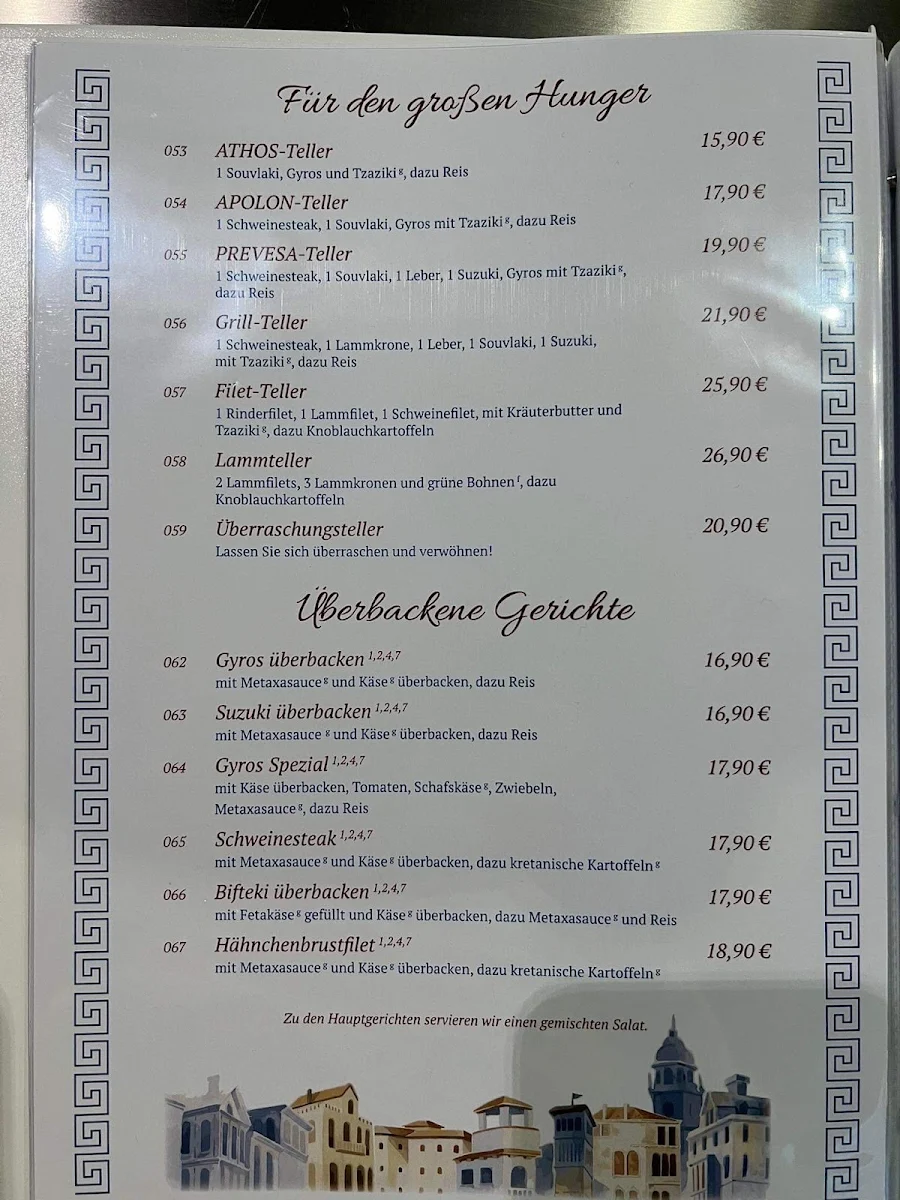 Für den großen Hunger
053 ATHOS-Teller 15,90 €
1 Souvlaki, Gyros und Tzaziki ᵍ, dazu Reis
054 APOLON-Teller 17,90 €
1 Schweinesteak, 1 Souvlaki, Gyros mit Tzaziki ᵍ, dazu Reis
055 PREVESA-Teller 19,90 €
1 Schweinesteak, 1 Souvlaki, 1 Leber, 1 Suzuki, Gyros mit Tzaziki ᵍ,
dazu Reis
056 Grill-Teller 21,90 €
1 Schweinesteak, 1 Lammkrone, 1 Leber, 1 Souvlaki, 1 Suzuki,
mit Tzaziki ᵍ, dazu Reis
057 Filet-Teller 25,90 €
1 Rinderfilet, 1 Lammfilet, 1 Schweinefilet, mit Kräuterbutter und
Tzaziki ᵍ, dazu Knoblauchkartoffeln
058 Lammteller 26,90 €
2 Lammfilets, 3 Lammkronen und grüne Bohnen ᶠ, dazu
Knoblauchkartoffeln
059 Überraschungsteller 20,90 €
Lassen Sie sich überraschen und verwöhnen!
Überbackene Gerichte
062 Gyros überbacken 1,2,4,7 16,90 €
mit Metaxasauce ᵍ und Käse ᵍ überbacken, dazu Reis
063 Suzuki überbacken 1,2,4,7 16,90 €
mit Metaxasauce ᵍ und Käse ᵍ überbacken, dazu Reis
064 Gyros Spezial 1,2,4,7 17,90 €
mit Käse überbacken, Tomaten, Schafskäse ᵍ, Zwiebeln,
Metaxasauce ᵍ, dazu Reis
065 Schweinesteak 1,2,4,7 17,90 €
mit Metaxasauce ᵍ und Käse ᵍ überbacken, dazu kretanische Kartoffeln ᵍ
066 Bifteki überbacken 1,2,4,7 17,90 €
mit Fetakäse ᵍ gefüllt und Käse ᵍ überbacken, dazu Metaxasauce ᵍ und Reis
067 Hähnchenbrustfilet 1,2,4,7 18,90 €
mit Metaxasauce ᵍ und Käse ᵍ überbacken, dazu kretanische Kartoffeln ᵍ
Zu den Hauptgerichten servieren wir einen gemischten Salat.